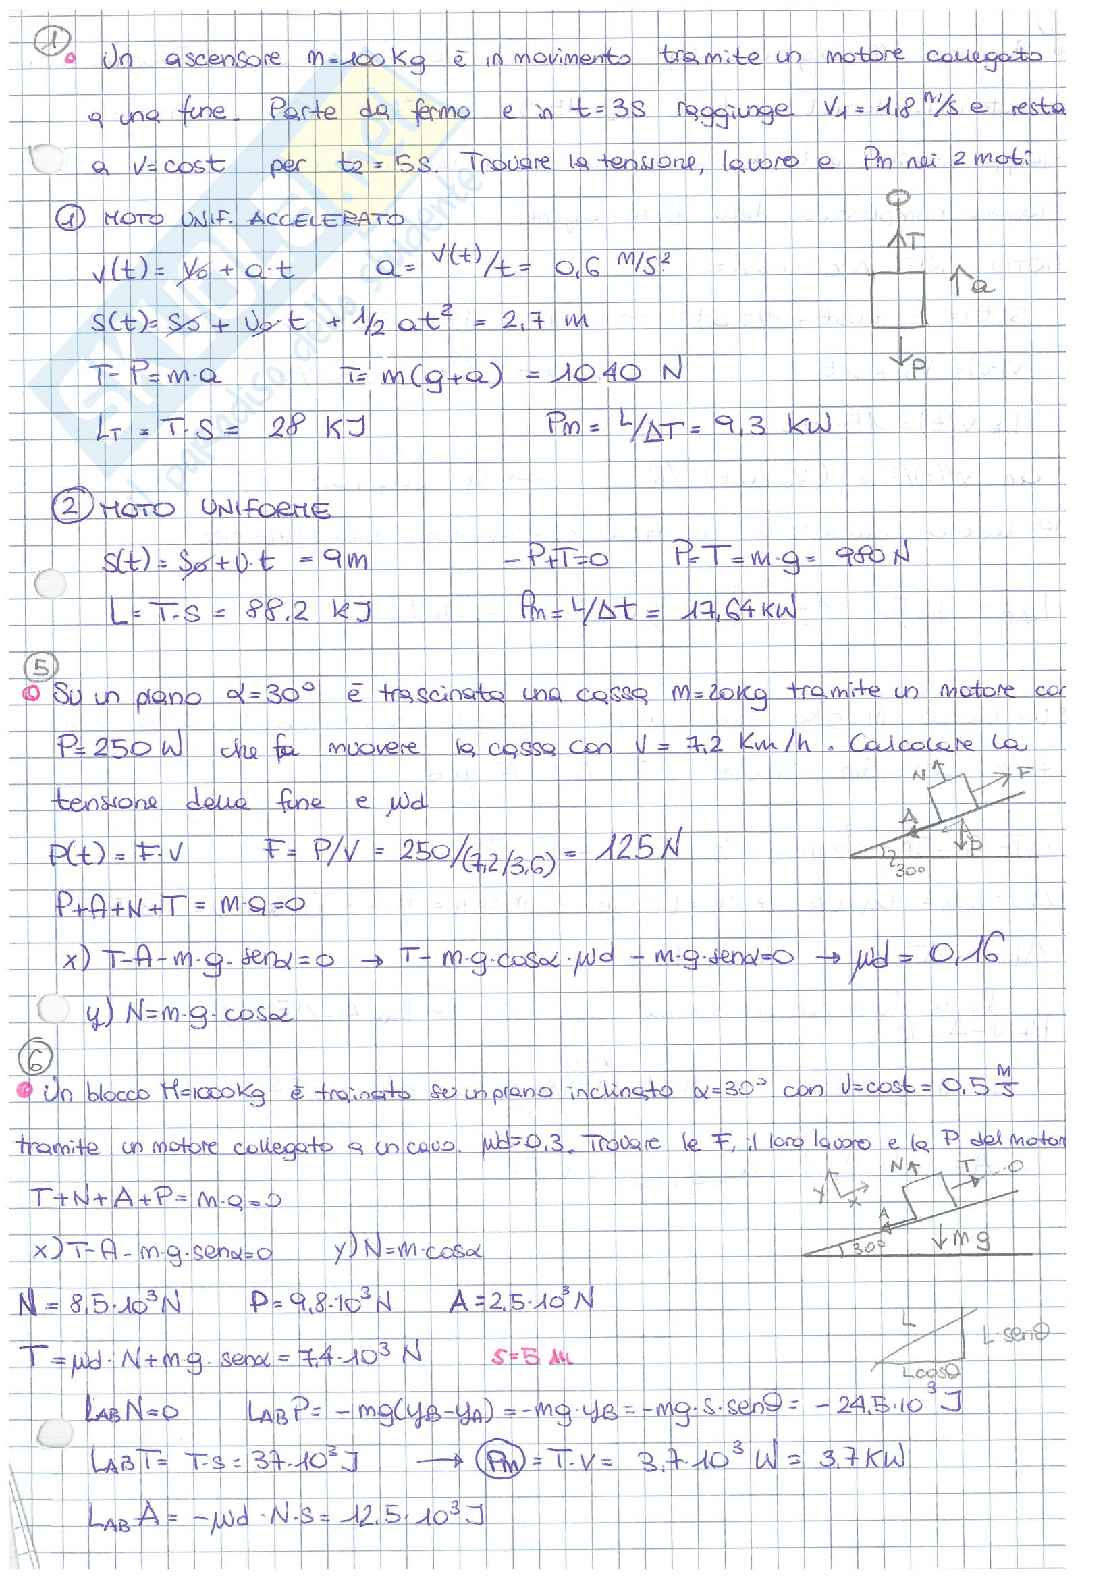 1
Un ascensore m=100Kg è in movimento tramite un motore collegato
a una fune. Parte da fermo e in t=3s raggiunge V1=1,8 m/s e resta
a v=cost per t2=5s. Trovare la tensione, lavoro e Pm nei 2 moti
1 MOTO UNIF. ACCELERATO
v(t)= v0 + a·t a= v(t)/t= 0,6 m/s²
s(t)= s0 + v0·t + 1/2 at² = 2,7 m
T-P=m·a T= m(g+a) = 1040 N
LT = T·S = 28 KJ Pm= L/ΔT= 9,3 KW
T
a
P
2 MOTO UNIFORME
s(t)= s0+v·t = 9m -P+T=0 P=T=m·g= 980N
L= T·S = 88,2 KJ Pm=L/Δt= 17,64KW
5
Su un piano α=30° è trascinata una cassa m=20Kg tramite un motore con
P=250W che fa muovere la cassa con V=7,2 Km/h. Calcolare la
tensione della fune e μd
P(t)= F·V F= P/V = 250/(7,2/3,6)= 125N
N F A P 30°
P+A+N+T = m·a=0
x) T-A-m·g·senα=0 → T-m·g·cosα·μd -m·g·senα=0 → μd= 0,16
y) N=m·g·cosα
6
Un blocco M=1000Kg è trainato su un piano inclinato α=30° con v=cost=0,5 m/s
tramite un motore collegato a un cavo. μd=0,3. Trovare le F, il loro lavoro e la P del motor
T+N+A+P=m·a=0
x)T-A-m·g·senα=0 y)N=m·cosα
y x N T A 30° mg
N= 8,5·10³N P=9,8·10³N A=2,5·10³N
T=μd·N+mg·senα=7,4·10³ N s=5 m
L L·senθ Lcosθ
LAB N=0 LAB P= -mg(yB-yA)=-mg·yB=-mg·s·senθ= -24,5·10³J
LAB T= T·S=37·10³J → Pm=T·V= 3,7·10³ W= 3,7KW
LAB A= -μd·N·S=12,5·10³J